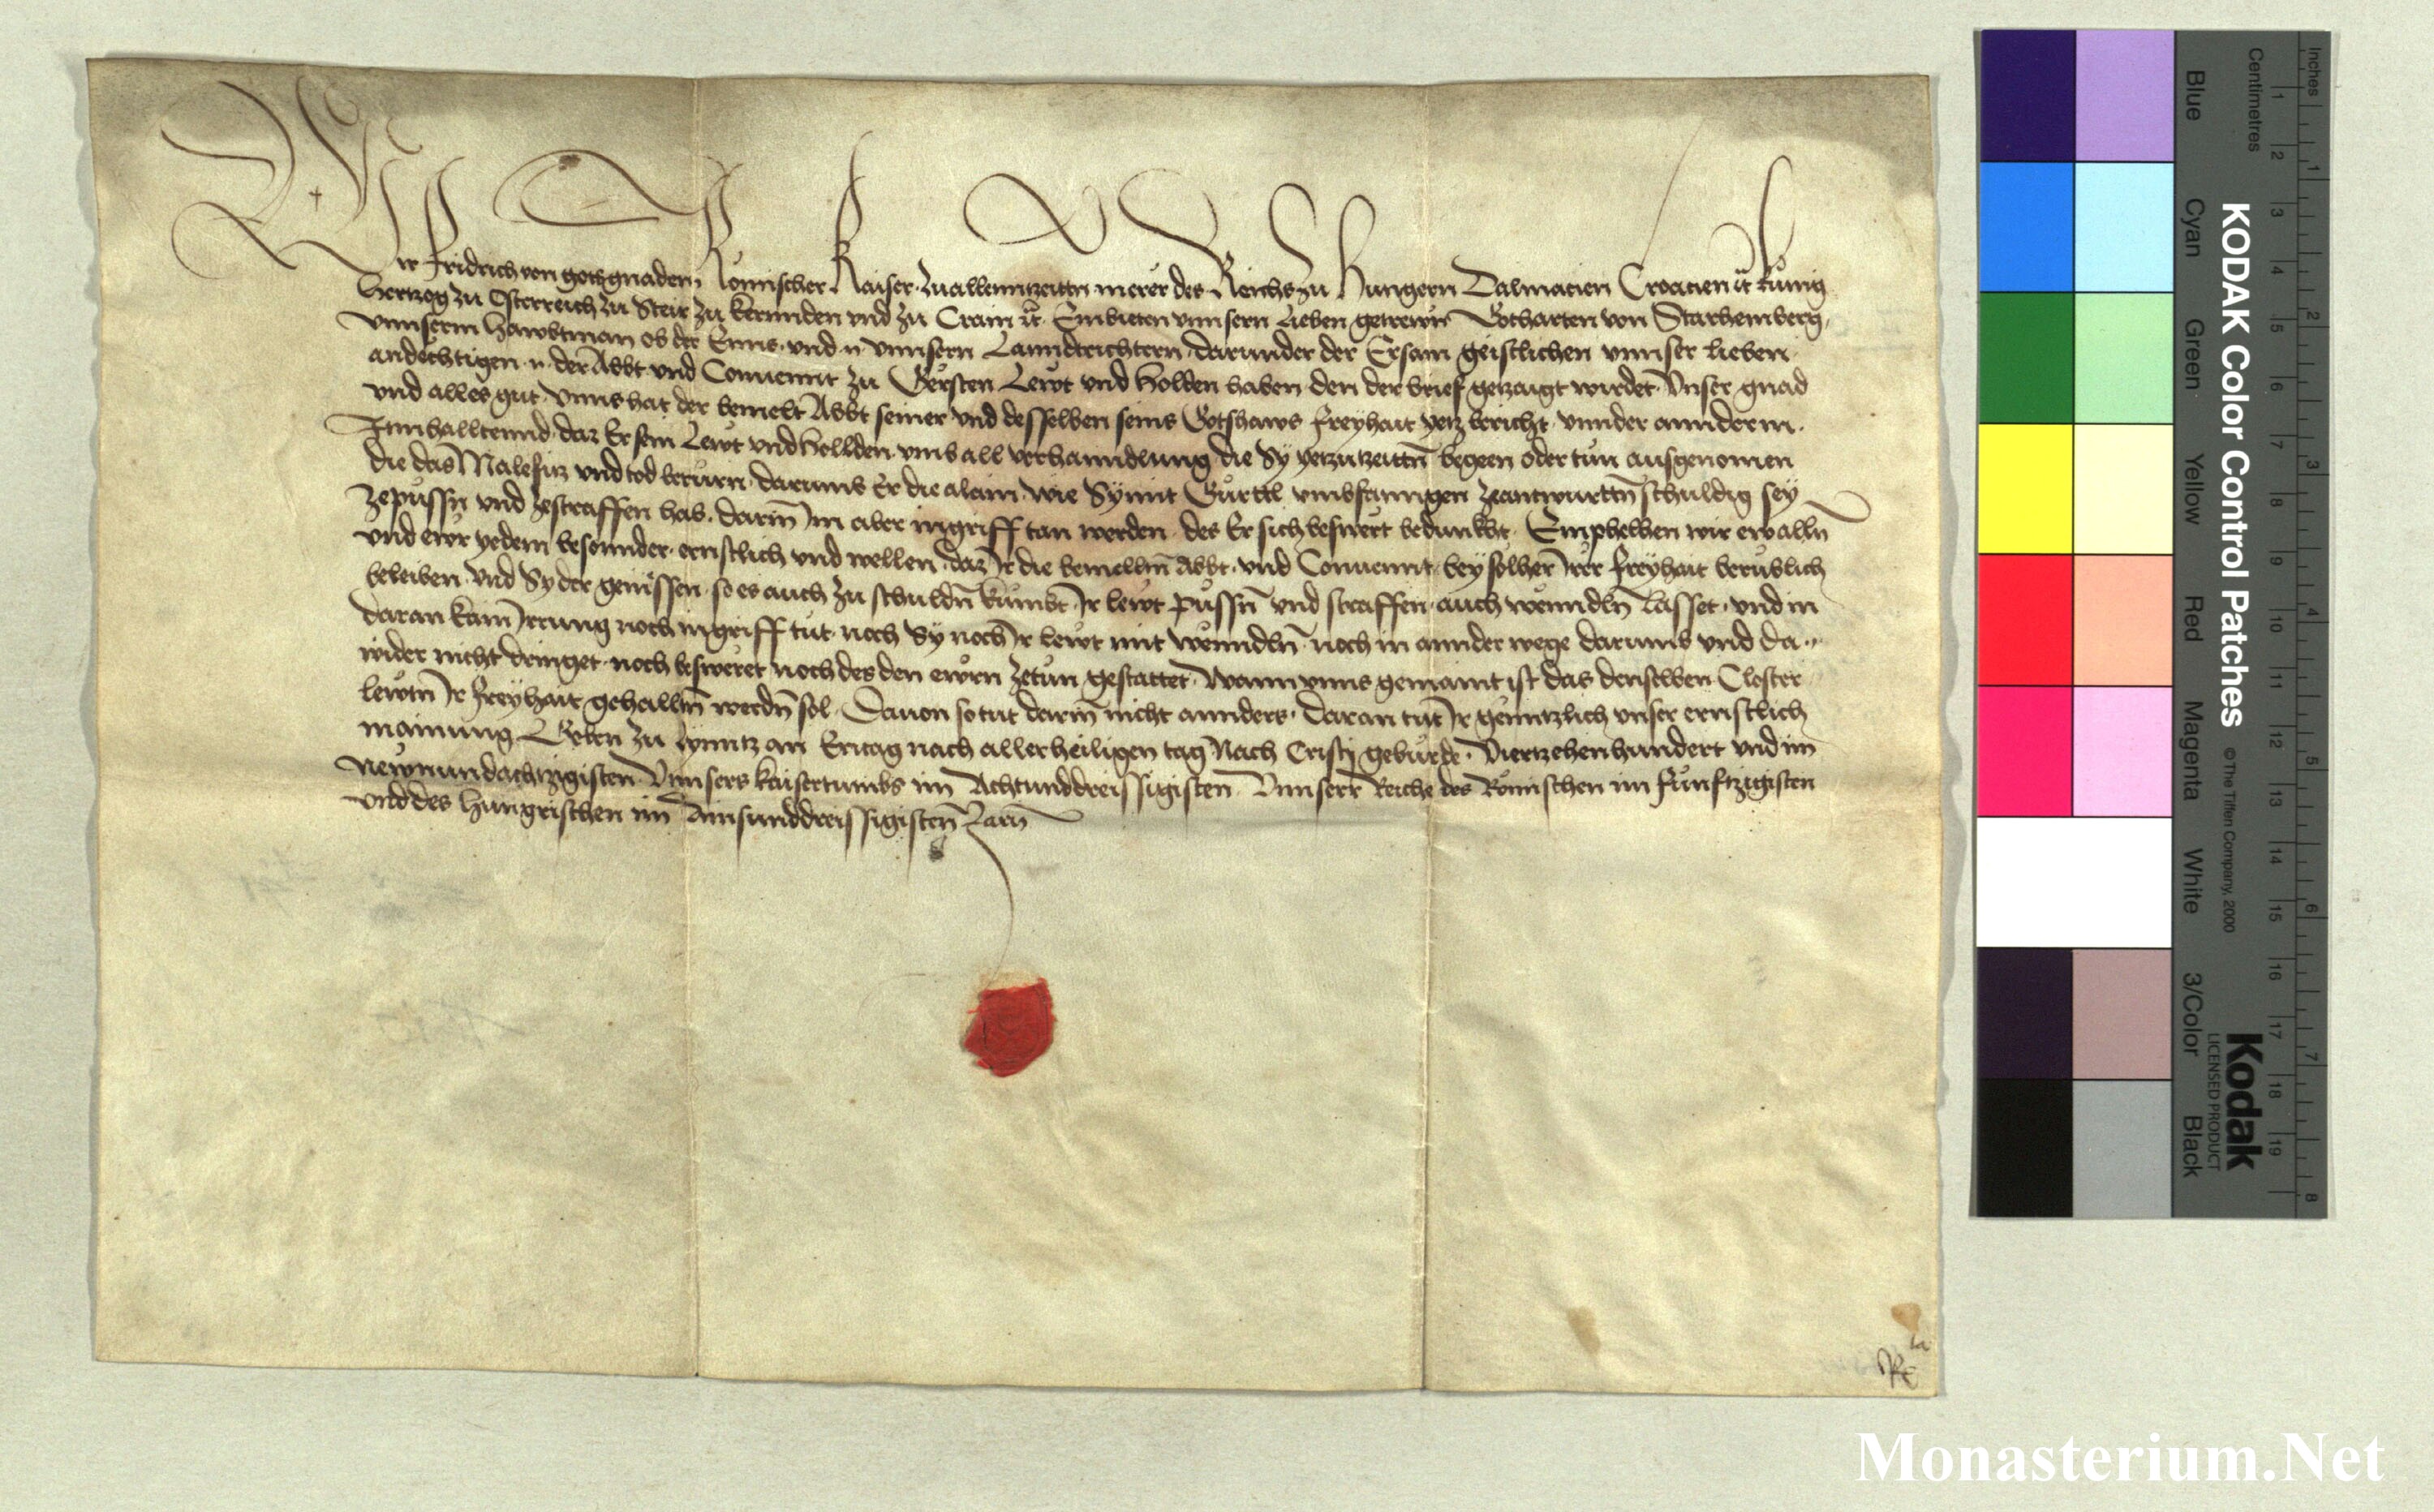 Wir Fridrich von gots gnaden Romischer Kaiser zuallenntzeittn merer des Reichs zu Hungern Dalmacien Croacien etc kunig
Hertzog zu Osterreich zu Steir zu kernnden vnd zu Crain etc Embieten vnnsern lieben getrewn Gotharten von Starhemberg
vnnserm Hawbtman ob der Enns vnd n vnnsern Lanndrichtern darunder der Ersam geistlichen vnnser lieben
andechtigen n der Abbt vnd Conuennt zu Gersten Lewt vnd Holden haben den der brief getzaigt wirdet Vnser gnad
vnd alles gut vnns hat der bemelt Abbt seiner vnd desselben seins Gotshaws freyhait yetz bericht vnnder annderm
Innhalltennd daz Er sein Lewt vnd Hollden vmb all verhanndlung die Sy yetzutzeittn begeen oder tun ausgenomen
die das Malefitz vnd tod berurn darumb Er die alain wie Sy mit Gurttl vmbfanngen zeantwurttn schuldig sey
zepussn vnd zestraffen hab darin im aber ingriff tan werden des Er sich beswert bedunkht Emphelhen wir ew alln
vnd ewr yedem besonnder ernstlich vnd wellen daz Ir die bemelltn Abbt vnd Conuennt bey solher Irer freyhait berublich
beleiben vnd Sy der geniessen so es auch zu schuldn kumbt Ir lewt pussn vnd straffen auch wanndln lasset vnd in
daran kain Irrung noch ingriff tut noch Sy noch Ir lewt mit wanndln noch in annder wege darumb vnd da
wider nicht dringet noch besweret noch des den ewrn zetun gestattet Wann vnns gemaint ist das denselben Closter
lewtn Ir freyhait gehalltn werdn sol Dauon so tut darin nicht annders daran tut Ir genntzlich vnser ernstlich
mainung Geben zu Lynntz an Eritag nach allerheiligen tag Nach Cristi geburde Viertzehenhundert vnd im
Newnundachtzigisten Vnnsers kaisertumbs im Achtunddreissigisten Vnnserr Reiche des Romischen im funftzigisten
vnd des Hungrischen im Ainsunddreissigisten Jarn
KODAK Color Control Patches
© The Tiffen Company, 2000
Kodak
LICENSED PRODUCT
Inches
Centimetres
1 2 3 4 5 6 7 8 9 10 11 12 13 14 15 16 17 18 19
1 2 3 4 5 6 7 8
Blue Cyan Green Yellow Red Magenta White 3/Color Black
Monasterium.Net